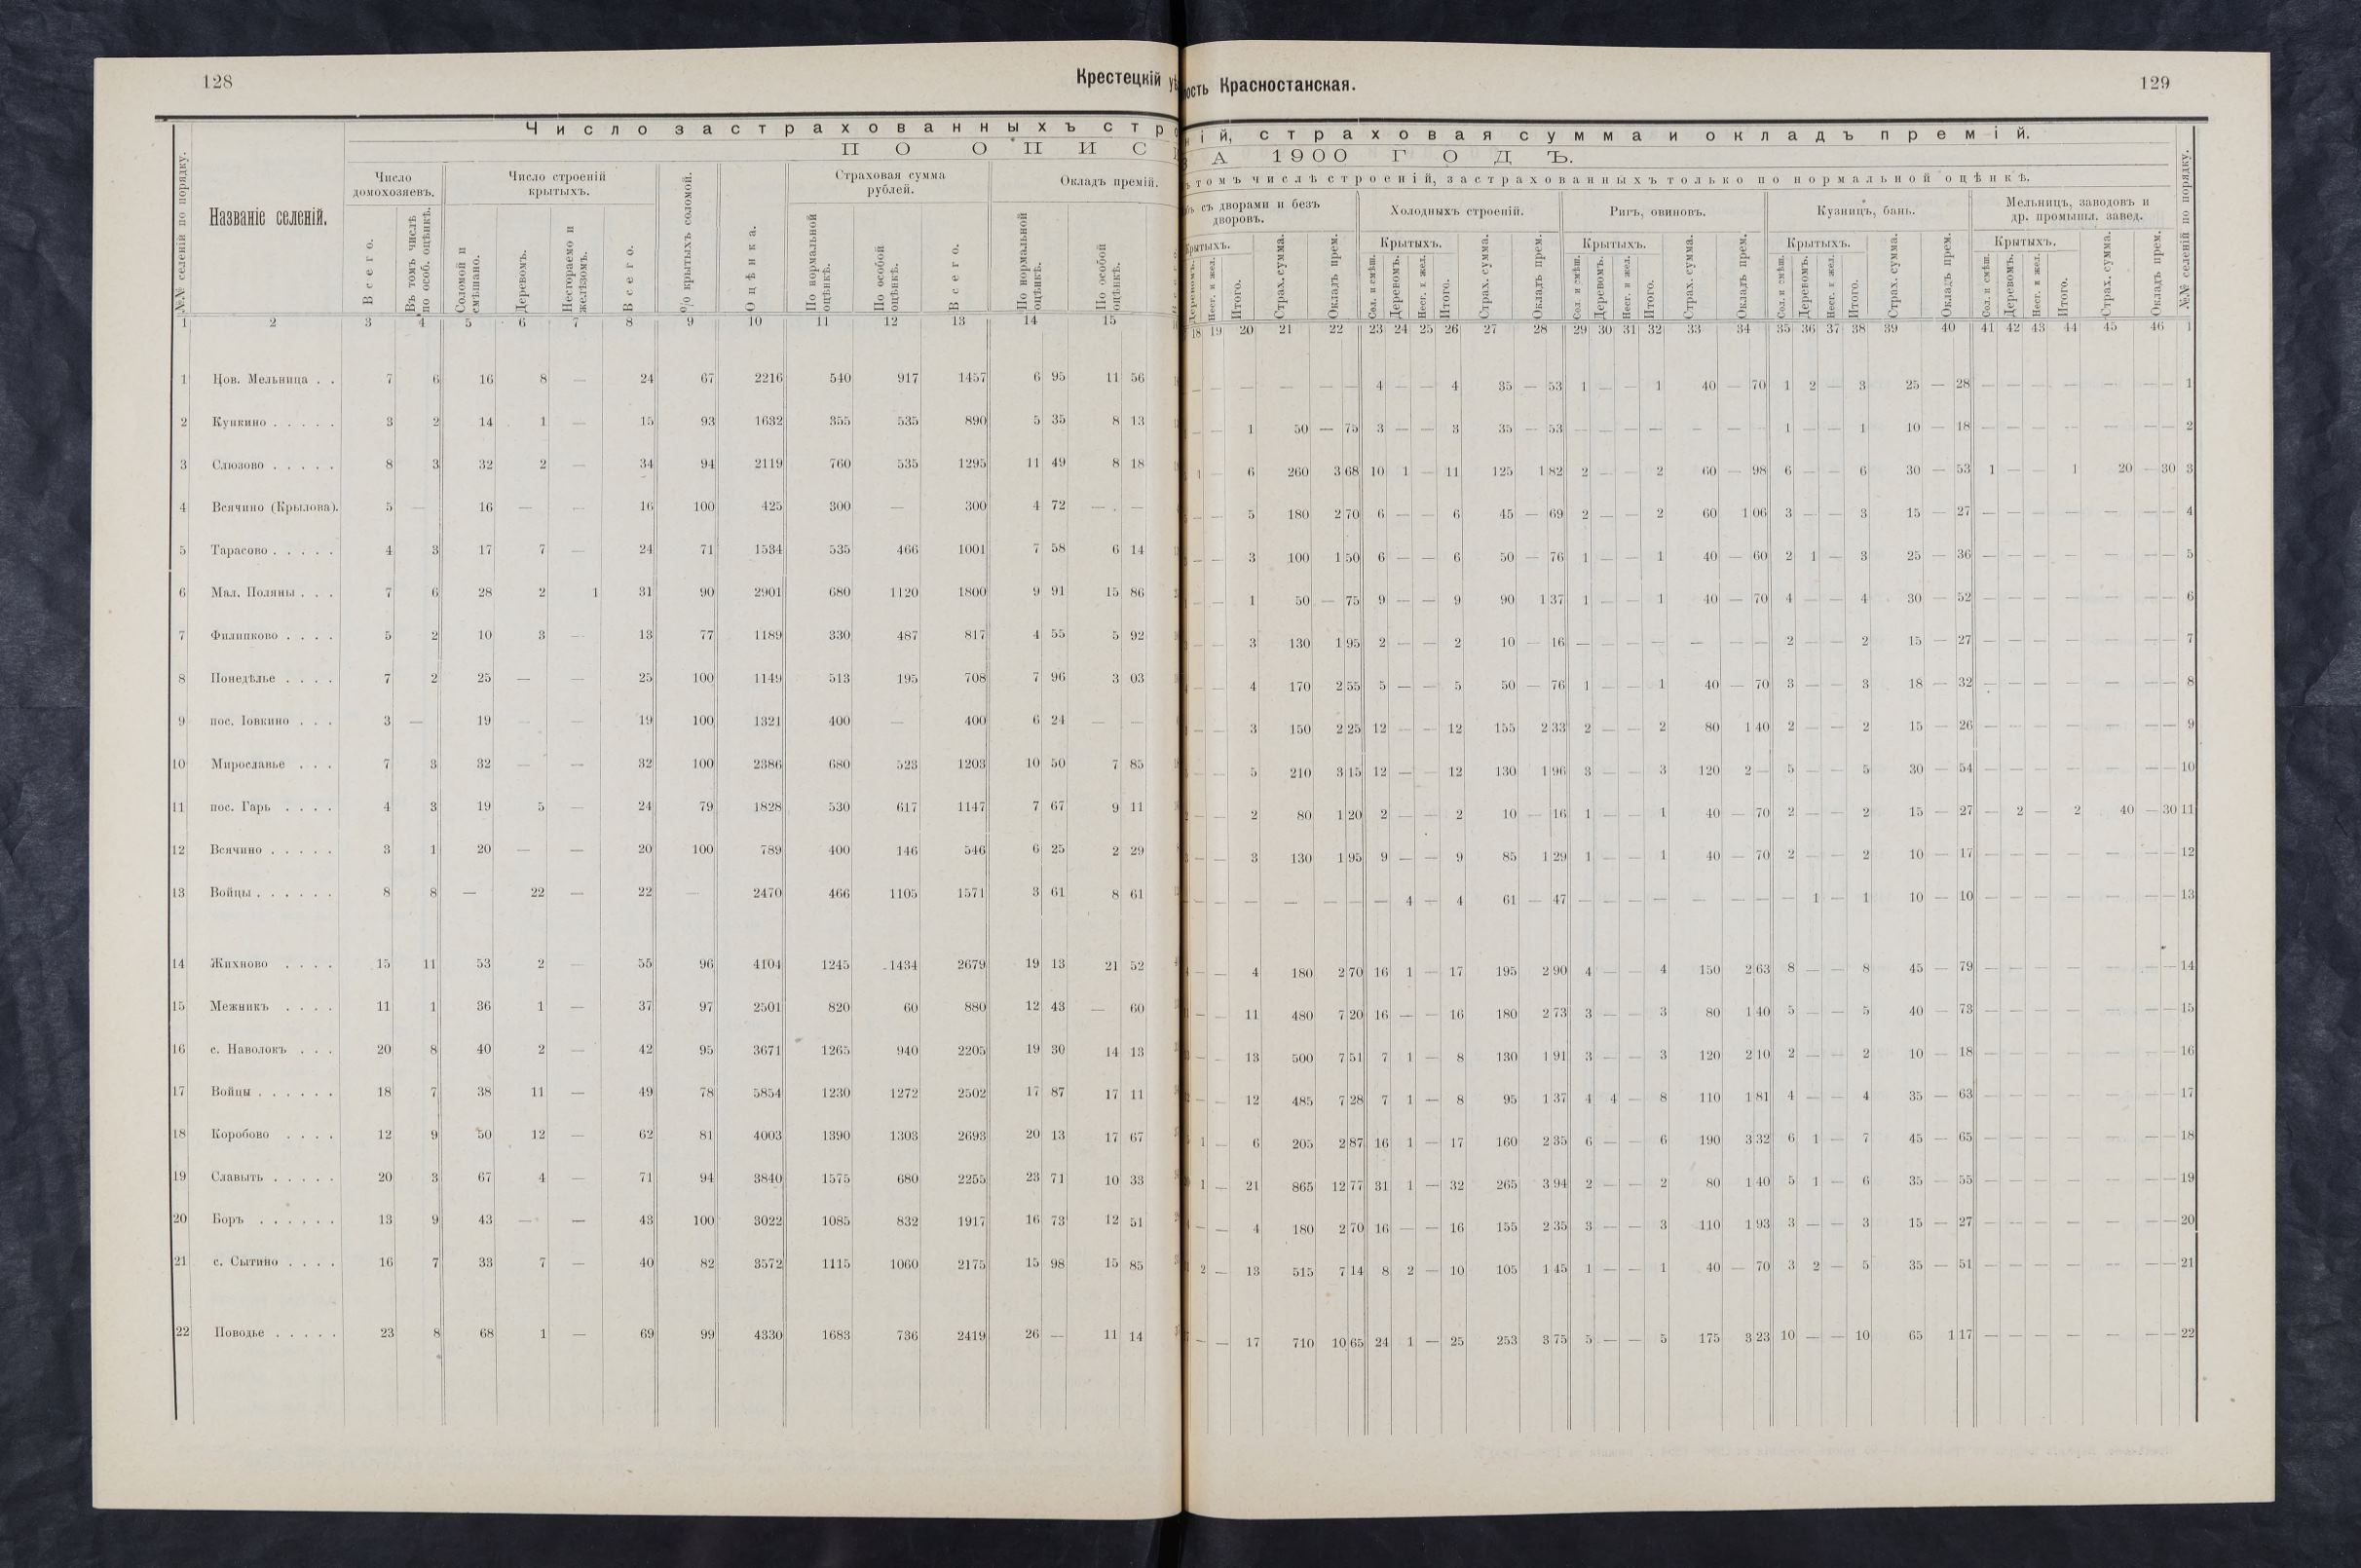 128
Крестецкій
Число застрахованныхъ
ПО ОПИС
№№ селеній по порядку.
Названіе селеній.
Число домохозяевъ.
Всего.
Въ томъ числѣ по особ. оцѣнкѣ.
Число строеній крытыхъ.
Соломой и смѣшано.
Деревомъ.
Несгораемо и желѣзомъ.
Всего.
% крытыхъ соломой.
Оцѣнка.
Страховая сумма рублей.
По нормальной оцѣнкѣ.
По особой оцѣнкѣ.
Всего.
Окладъ премій.
По нормальной оцѣнкѣ.
По особой оцѣнкѣ.
1 2 3 4 5 6 7 8 9 10 11 12 13 14 15
1 Цов. Мельница . . 7 6 16 8 — 24 67 2216 540 917 1457 6 95 11 56
2 Купкино . . . . . 3 2 14 1 — 15 93 1632 355 535 890 5 35 8 13
3 Слюзово . . . . . 8 3 32 2 — 34 94 2119 760 535 1295 11 49 8 18
4 Всячино (Крылова). 5 — 16 — — 16 100 425 300 — 300 4 72 — —
5 Тарасово . . . . . 4 3 17 7 — 24 71 1534 535 466 1001 7 58 6 14
6 Мал. Поляны . . . 7 6 28 2 1 31 90 2901 680 1120 1800 9 91 15 86
7 Филипково . . . . 5 2 10 3 — 13 77 1189 330 487 817 4 55 5 92
8 Понедѣлье . . . . 7 2 25 — — 25 100 1149 513 195 708 7 96 3 03
9 пос. Іовкино . . . 3 — 19 — — 19 100 1321 400 — 400 6 24 — —
10 Мирославье . . . 7 3 32 — — 32 100 2386 680 523 1203 10 50 7 85
11 пос. Гарь . . . . 4 3 19 5 — 24 79 1828 530 617 1147 7 67 9 11
12 Всячино . . . . . 3 1 20 — — 20 100 789 400 146 546 6 25 2 29
13 Войцы . . . . . . 8 8 — 22 — 22 — 2470 466 1105 1571 3 61 8 61
14 Жихново . . . . 15 11 53 2 — 55 96 4104 1245 1434 2679 19 13 21 52
15 Межникъ . . . . 11 1 36 1 — 37 97 2501 820 60 880 12 43 — 60
16 с. Наволокъ . . . 20 8 40 2 — 42 95 3671 1265 940 2205 19 30 14 13
17 Войцы . . . . . . 18 7 38 11 — 49 78 5854 1230 1272 2502 17 87 17 11
18 Коробово . . . . 12 9 50 12 — 62 81 4003 1390 1303 2693 20 13 17 67
19 Славыть . . . . . 20 3 67 4 — 71 94 3840 1575 680 2255 23 71 10 33
20 Боръ . . . . . . 13 9 43 — — 43 100 3022 1085 832 1917 16 73 12 51
21 с. Сытино . . . . 16 7 33 7 — 40 82 3572 1115 1060 2175 15 98 15 85
22 Поводье . . . . . 23 8 68 1 — 69 99 4330 1683 736 2419 26 — 11 14
ость Красностанская.
129
ній, страховая сумма и окладъ премій.
А 1900 ГОДЪ.
томъ числѣ строеній, застрахованныхъ только по нормальной оцѣнкѣ.
съ дворами и безъ дворовъ.
Крытыхъ.
Деревомъ.
Несг. и жел.
Итого.
Страх. сумма.
Окладъ прем.
Холодныхъ строеній.
Крытыхъ.
Сол. и смѣш.
Деревомъ.
Несг. и жел.
Итого.
Страх. сумма.
Окладъ прем.
Ригъ, овиновъ.
Крытыхъ.
Сол. и смѣш.
Деревомъ.
Несг. и жел.
Итого.
Страх. сумма.
Окладъ прем.
Кузницъ, бань.
Крытыхъ.
Сол. и смѣш.
Деревомъ.
Несг. и жел.
Итого.
Страх. сумма.
Окладъ прем.
Мельницъ, заводовъ и др. промышл. завед.
Крытыхъ.
Сол. и смѣш.
Деревомъ.
Несг. и жел.
Итого.
Страх. сумма.
Окладъ прем.
№№ селеній по порядку.
18 19 20 21 22 23 24 25 26 27 28 29 30 31 32 33 34 35 36 37 38 39 40 41 42 43 44 45 46 1
— — — — — 4 — — 4 35 — 53 1 — — 1 40 — 70 1 2 — 3 25 — 28 — — — — — — — 1
— 1 50 — 75 3 — — 3 35 — 53 — — — — — — — 1 — — 1 10 — 18 — — — — — — — 2
1 — 6 260 3 68 10 1 — 11 125 1 82 2 — — 2 60 — 98 6 — — 6 30 — 53 1 — — 1 20 — 30 3
— 5 180 2 70 6 — — 6 45 — 69 2 — — 2 60 1 06 3 — — 3 15 — 27 — — — — — — — 4
— — 3 100 1 50 6 — — 6 50 — 76 1 — — 1 40 — 60 2 1 — 3 25 — 36 — — — — — — — 5
— — 1 50 — 75 9 — — 9 90 1 37 1 — — 1 40 — 70 4 — — 4 30 — 52 — — — — — — — 6
— — 3 130 1 95 2 — — 2 10 — 16 — — — — — — — 2 — — 2 15 — 27 — — — — — — — 7
— — 4 170 2 55 5 — — 5 50 — 76 1 — — 1 40 — 70 3 — — 3 18 — 32 — — — — — — — 8
— — 3 150 2 25 12 — — 12 155 2 33 2 — — 2 80 1 40 2 — — 2 15 — 26 — — — — — — — 9
— — 5 210 3 15 12 — — 12 130 1 96 3 — — 3 120 2 — 5 — — 5 30 — 54 — — — — — — — 10
— — 2 80 1 20 2 — — 2 10 — 16 1 — — 1 40 — 70 2 — — 2 15 — 27 — 2 — 2 40 — 30 11
— — 3 130 1 95 9 — — 9 85 1 29 1 — — 1 40 — 70 2 — — 2 10 — 17 — — — — — — — 12
— — — — — — — 4 — 4 61 — 47 — — — — — — — — 1 — 1 10 — 10 — — — — — — — 13
— — 4 180 2 70 16 1 — 17 195 2 90 4 — — 4 150 2 63 8 — — 8 45 — 79 — — — — — — — 14
— — 11 480 7 20 16 — — 16 180 2 73 3 — — 3 80 1 40 5 — — 5 40 — 73 — — — — — — — 15
— — 13 500 7 51 7 1 — 8 130 1 91 3 — — 3 120 2 10 2 — — 2 10 — 18 — — — — — — — 16
— — 12 485 7 28 7 1 — 8 95 1 37 4 4 — 8 110 1 81 4 — — 4 35 — 63 — — — — — — — 17
1 — 6 205 2 87 16 1 — 17 160 2 35 6 — — 6 190 3 32 6 1 — 7 45 — 65 — — — — — — — 18
1 — 21 865 12 77 31 1 — 32 265 3 94 2 — — 2 80 1 40 5 1 — 6 35 — 55 — — — — — — — 19
— — 4 180 2 70 16 — — 16 155 2 35 3 — — 3 110 1 93 3 — — 3 15 — 27 — — — — — — — 20
2 — 13 515 7 14 8 2 — 10 105 1 45 1 — — 1 40 — 70 3 2 — 5 35 — 51 — — — — — — — 21
— — 17 710 10 65 24 1 — 25 253 3 75 5 — — 5 175 3 23 10 — — 10 65 1 17 — — — — — — — 22